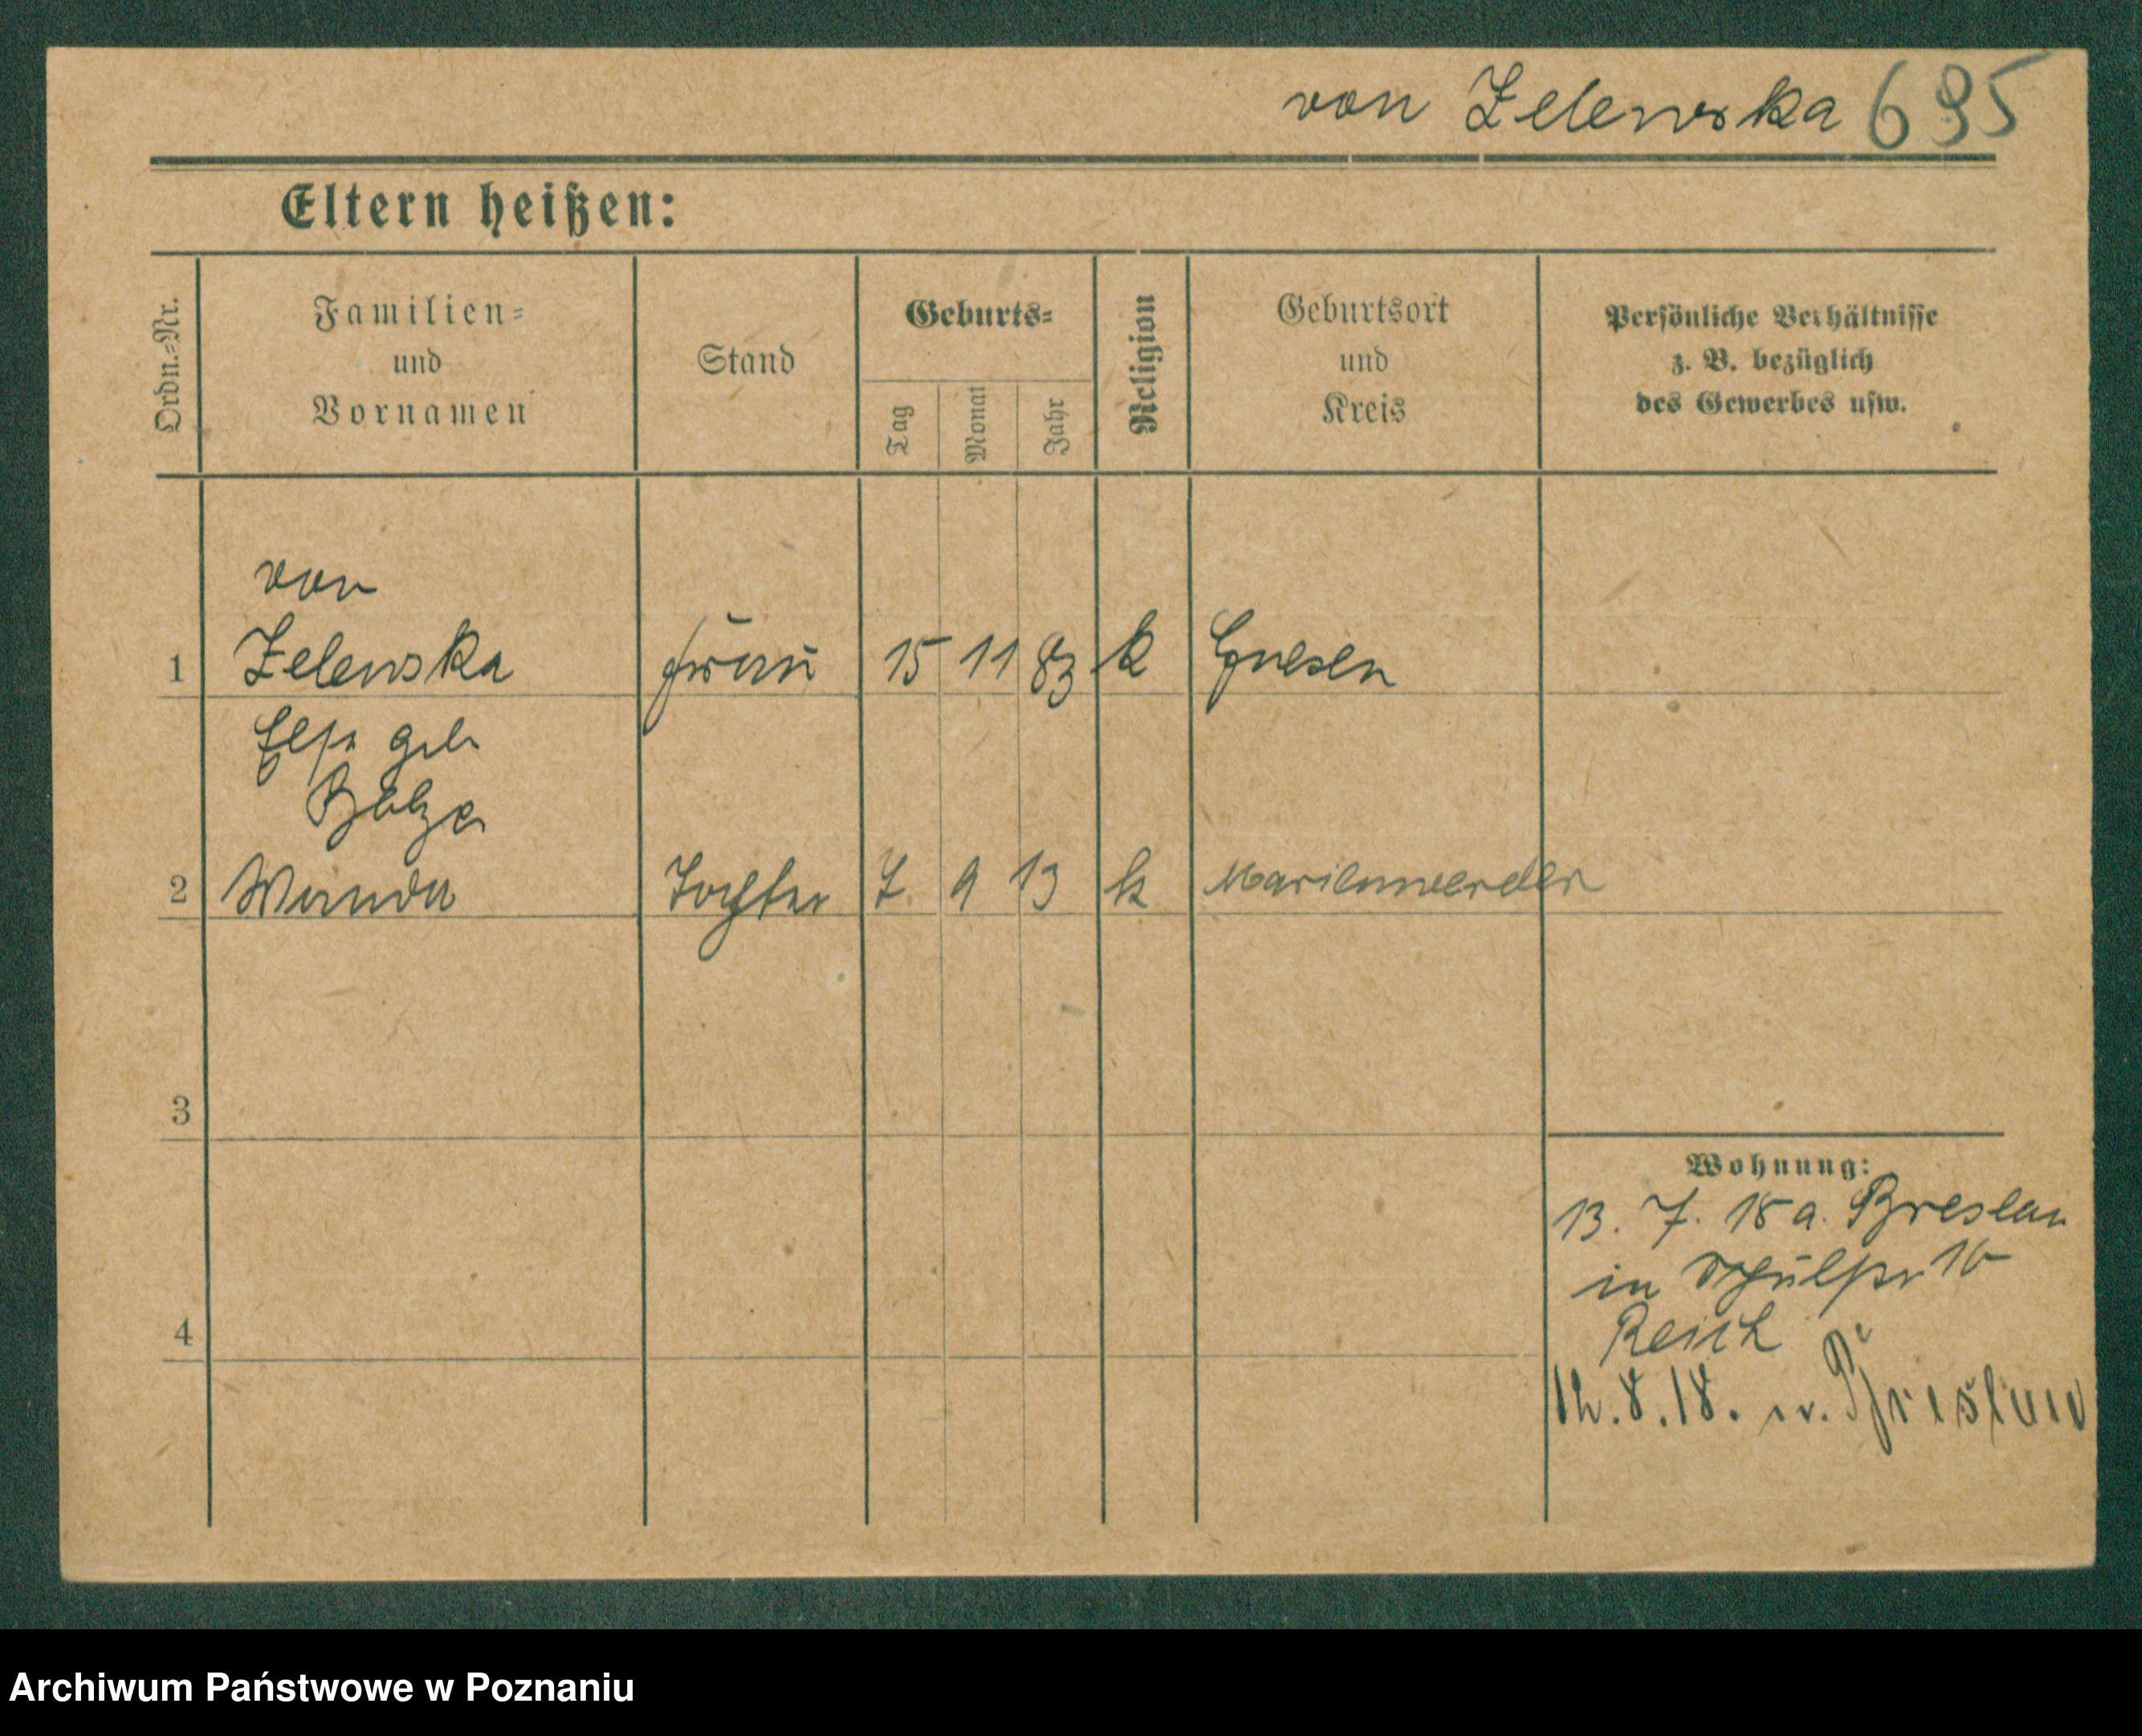 von Zelewska 695
Eltern heißen:
Ordn.-Nr.
Familien-
und
Vornamen
Stand
Geburts-
Tag
Monat
Jahr
Religion
Geburtsort
und
Kreis
Persönliche Verhältnisse
z. B. bezüglich
des Gewerbes usw.
von
1 Zelewska Frau 15 11 83 k Gnesen
Else geb
2 Wanda Tochter 7. 9 13 k Marienwerder
3
4
Wohnung:
13. 7. 18 a. Breslau
in
Reich
12.8.18. n. Breslau
Archiwum Państwowe w Poznaniu